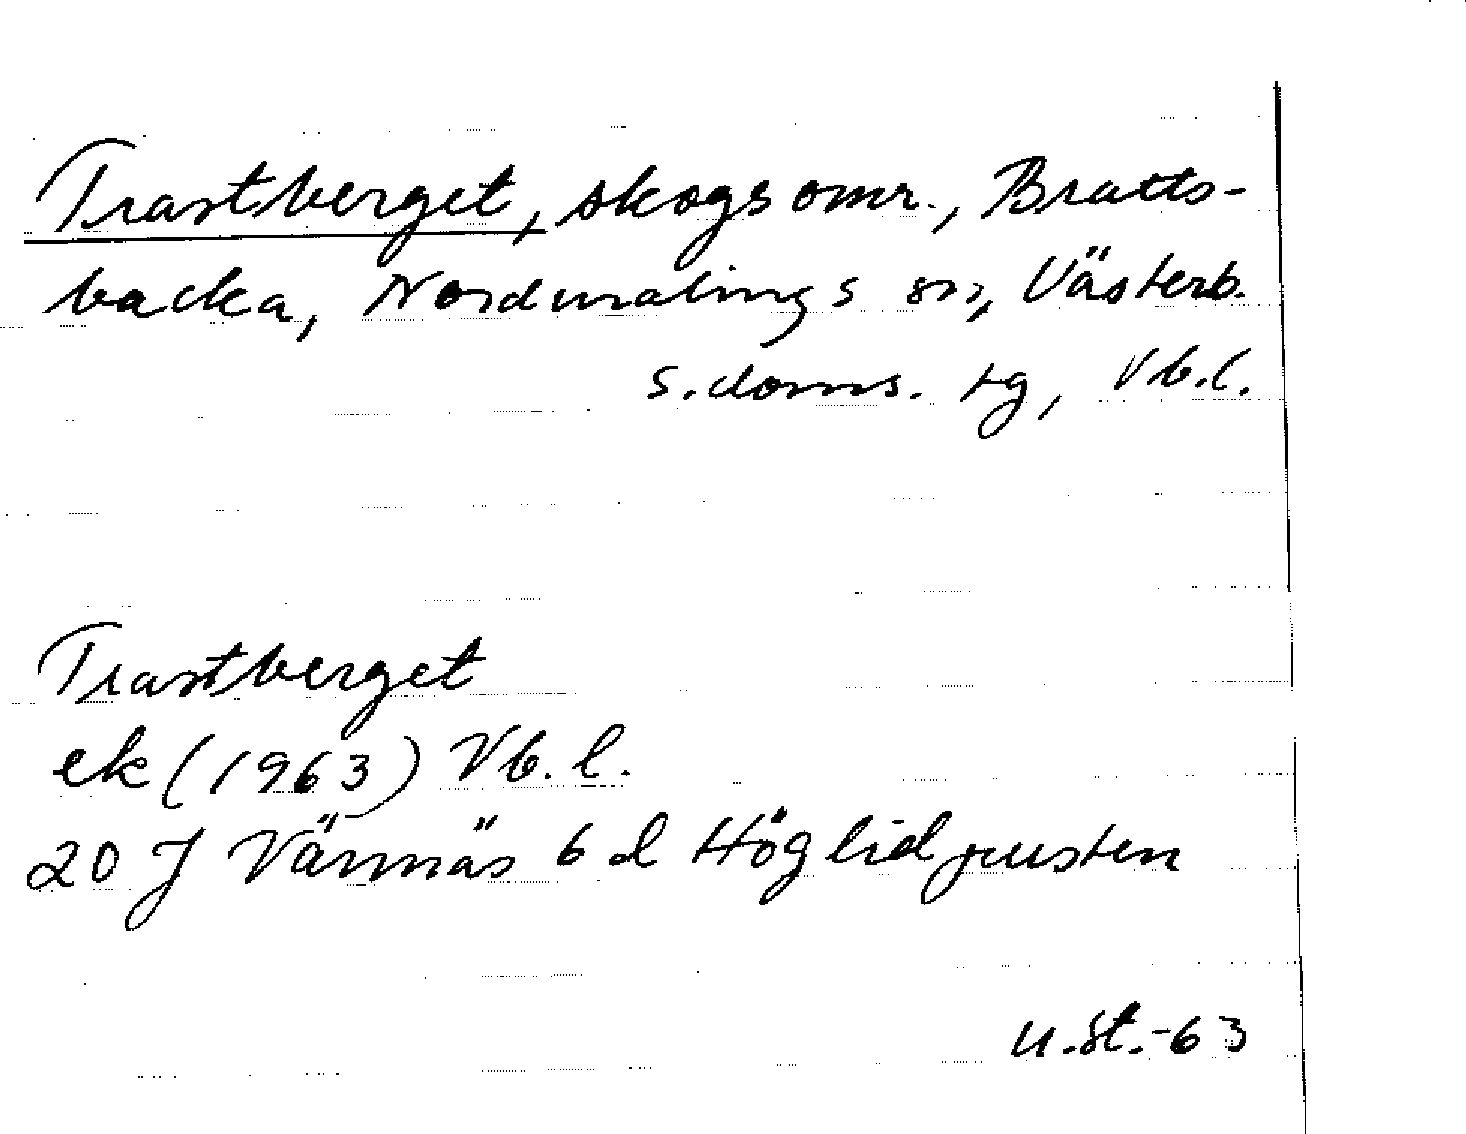 Trastberget, skogsomr., Bratts-
backa, Nordmalings sn, Västerb.
s. doms. tg, Vb.l.
Trastberget
ek (1963) Vb. l.
20 J Vännäs 6 d Höglidjusten
u.st.-63